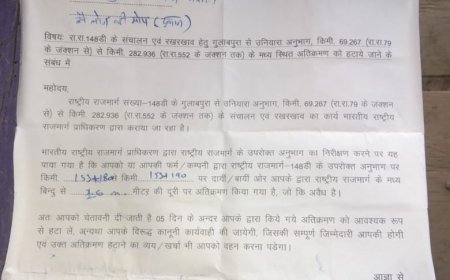 विषय: रा.रा.148डी के संचालन एवं रखरखाव हेतु गुलाबपुरा से उनियारा अनुभाग, किमी. 69.267 (रा.रा.79
के जंक्शन से) से किमी. 282.936 (रा.रा.552 के जंक्शन तक) के मध्य स्थित अतिक्रमण को हटाये जाने के
संबंध में
महोदय,
राष्ट्रीय राजमार्ग संख्या-148डी के गुलाबपुरा से उनियारा अनुभाग, किमी. 69.267 (रा.रा.79 के जंक्शन
से) से किमी. 282.936 (रा.रा.552 के जंक्शन तक) के संचालन एवं रखरखाव का कार्य भारतीय राष्ट्रीय
राजमार्ग प्राधिकरण द्वारा कराया जा रहा है।
भारतीय राष्ट्रीय राजमार्ग प्राधिकरण द्वारा राष्ट्रीय राजमार्ग के उपरोक्त अनुभाग का निरीक्षण करने पर यह
पाया गया है कि आपको या आपकी फर्म/कम्पनी द्वारा राष्ट्रीय राजमार्ग-148डी के उपरोक्त अनुभाग पर
किमी. से किमी. 153+190 पर दायीं/बायीं ओर आपके द्वारा राष्ट्रीय राजमार्ग के मध्य
बिन्दु से मीटर की दूरी पर अतिक्रमण किया गया है, जो कि अवैध है।
अतः आपको चेतावनी दी जाती है 05 दिन के अन्दर आपके द्वारा किये गये अतिक्रमण को आवश्यक रूप
से हटा लें, अन्यथा आपके विरूद्ध कानूनी कार्यवाही की जायेगी, जिसकी सम्पूर्ण जिम्मेदारी आपकी होगी
एवं उक्त अतिक्रमण हटाने का व्यय/खर्चा भी आपको वहन करना पडेगा।
आज्ञा से